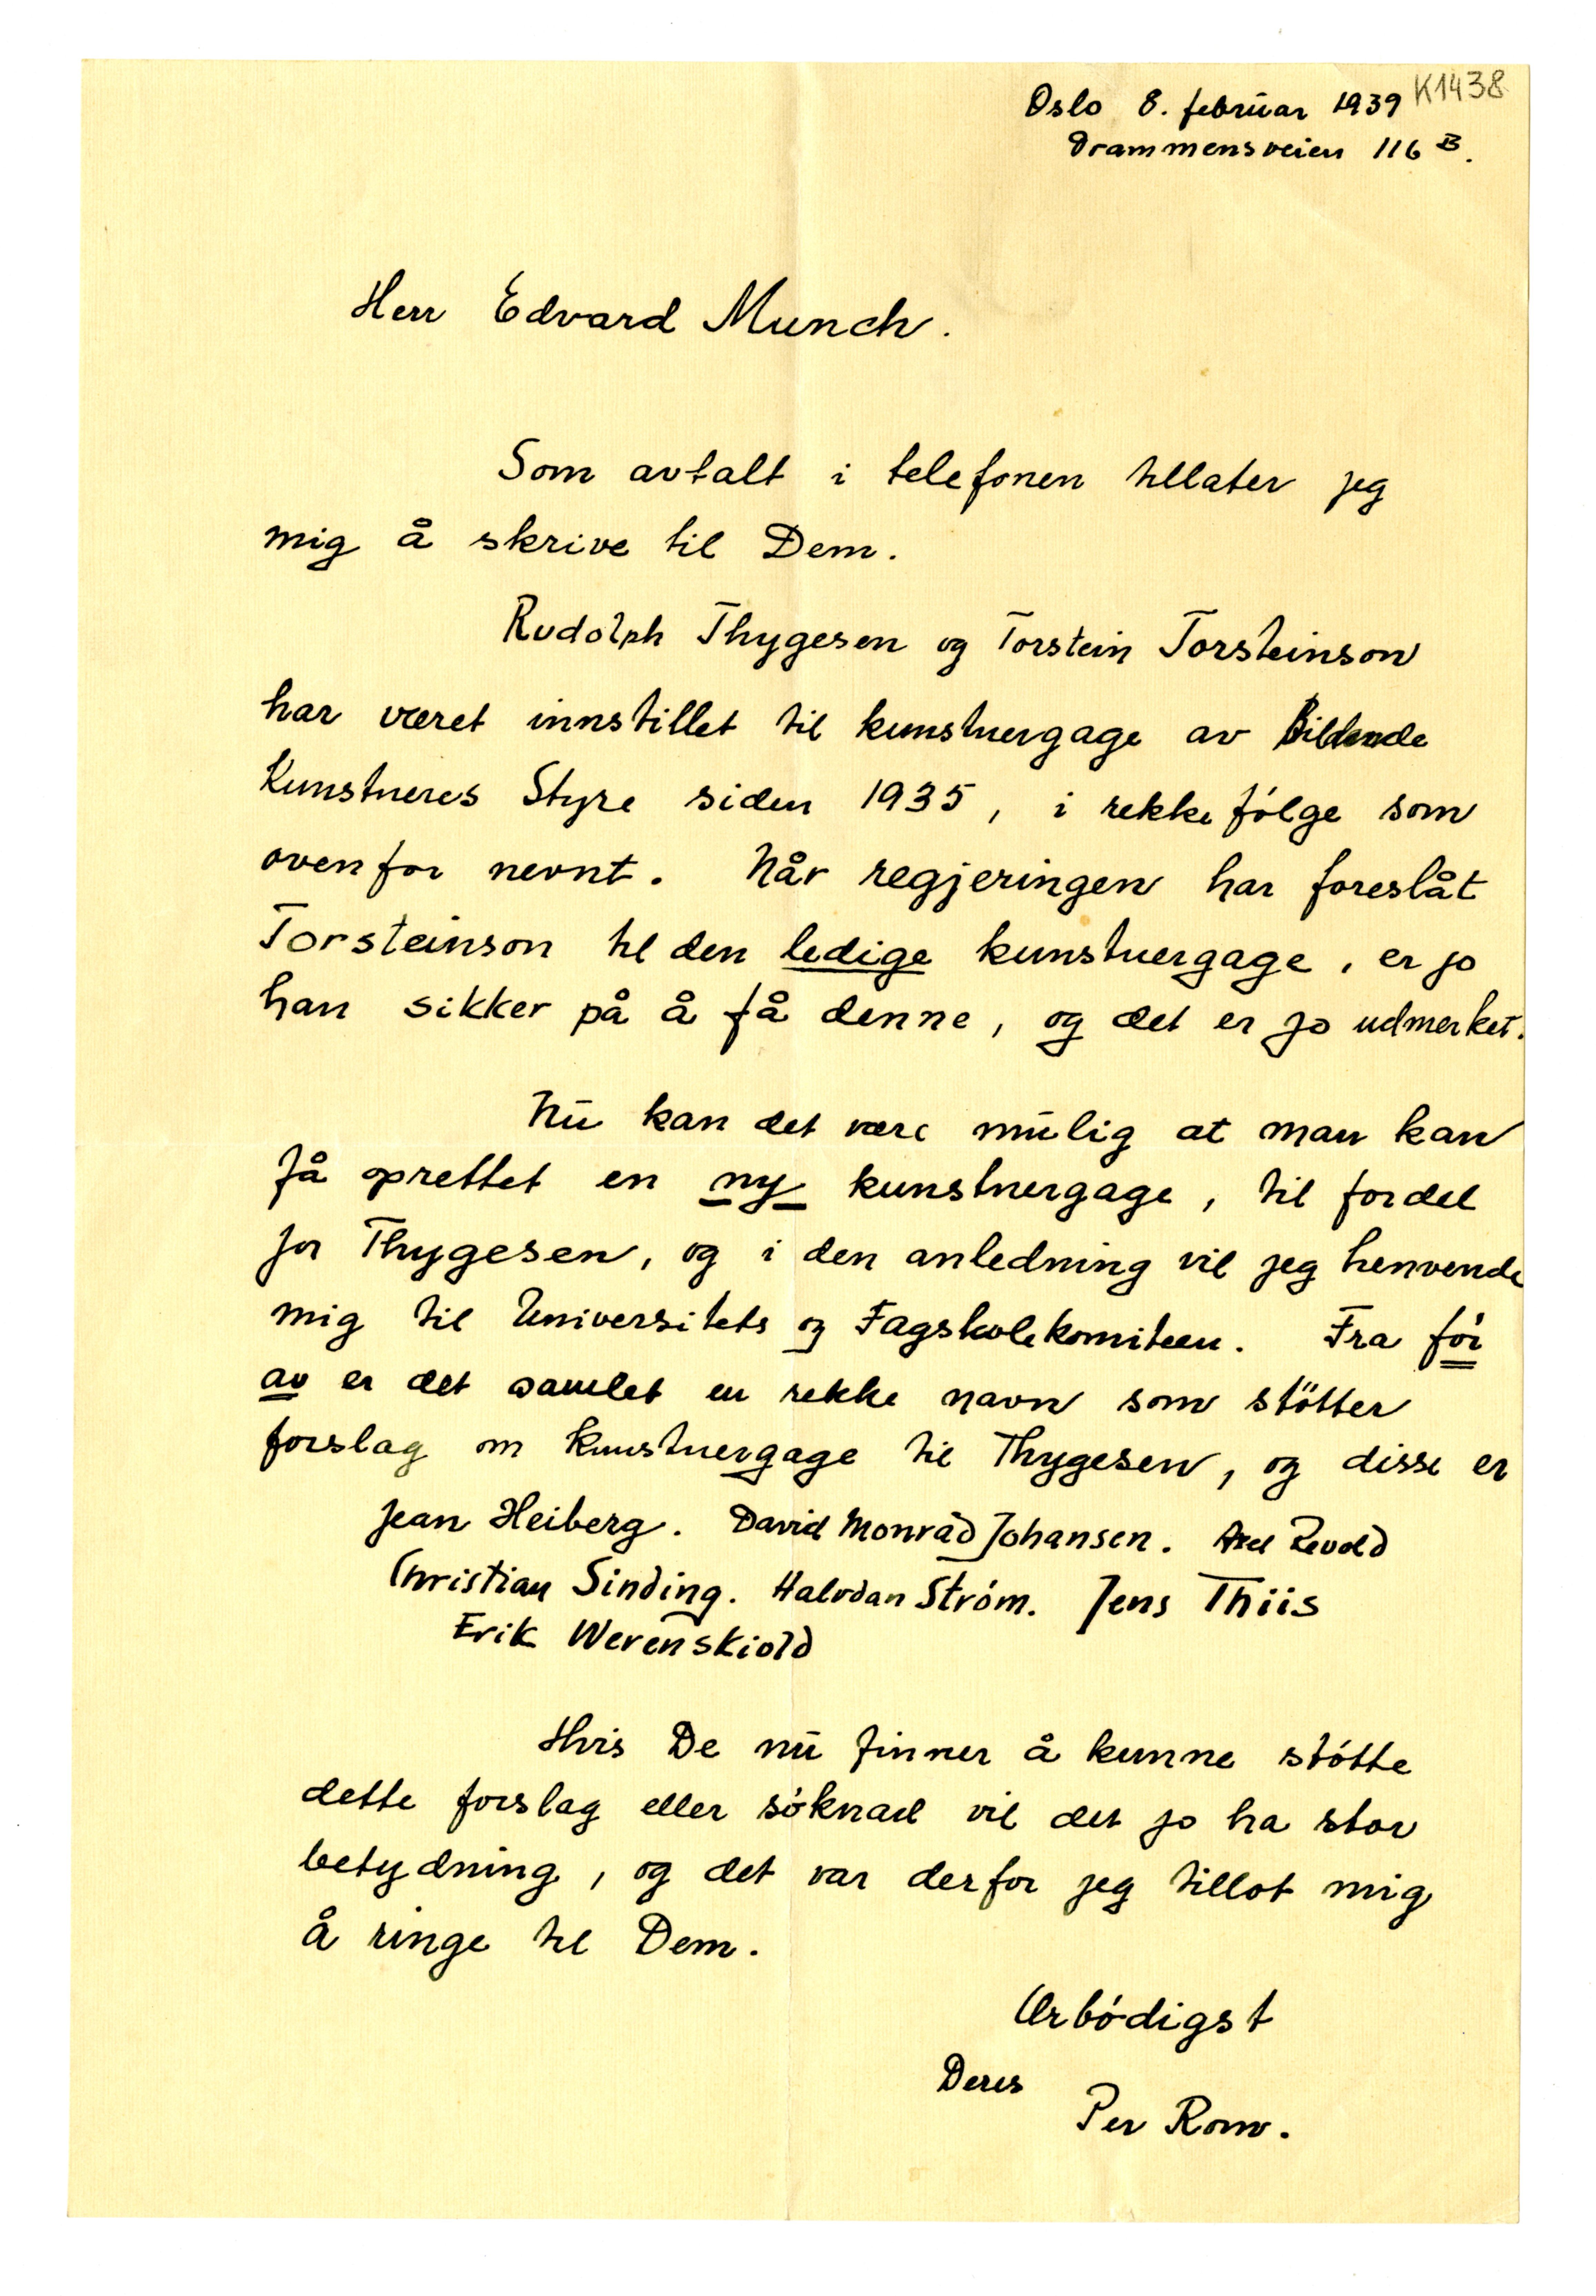 K1438
Oslo 8. februar 1939
Drammensveien 116 B.
Herr Edvard Munch.
Som avtalt i telefonen tillater jeg
mig å skrive til Dem.
Rudolph Thygesen og Torstein Torsteinson
har været innstillet til kunstnergage av Bildende
Kunstneres Styre siden 1935, i rekkefólge som
ovenfor nevnt. Når regjeringen har foreslåt
Torsteinson til den ledige kunstnergage, er jo
han sikker på å få denne, og det er jo udmerket.
Nu kan det være mulig at man kan
få oprettet en ny kunstnergage, til fordel
for Thygesen, og i den anledning vil jeg henvende
mig til Universitets og Fagskolekomiteen. Fra fór
av er det samlet en rekke navn som stötter
forslag om kunstnergage til Thygesen, og disse er
Jean Heiberg. David Monrad Johansen. Axel Revold
Christian Sinding. Halvdan Stróm. Jens Thiis
Erik Werenskiold
Hvis De nu finner å kunne stótte
dette forslag eller sóknad vil det jo ha stor
betydning, og det var derfor jeg tillot mig
å ringe til Dem.
Ærbódigst
Deres
Per Rom.